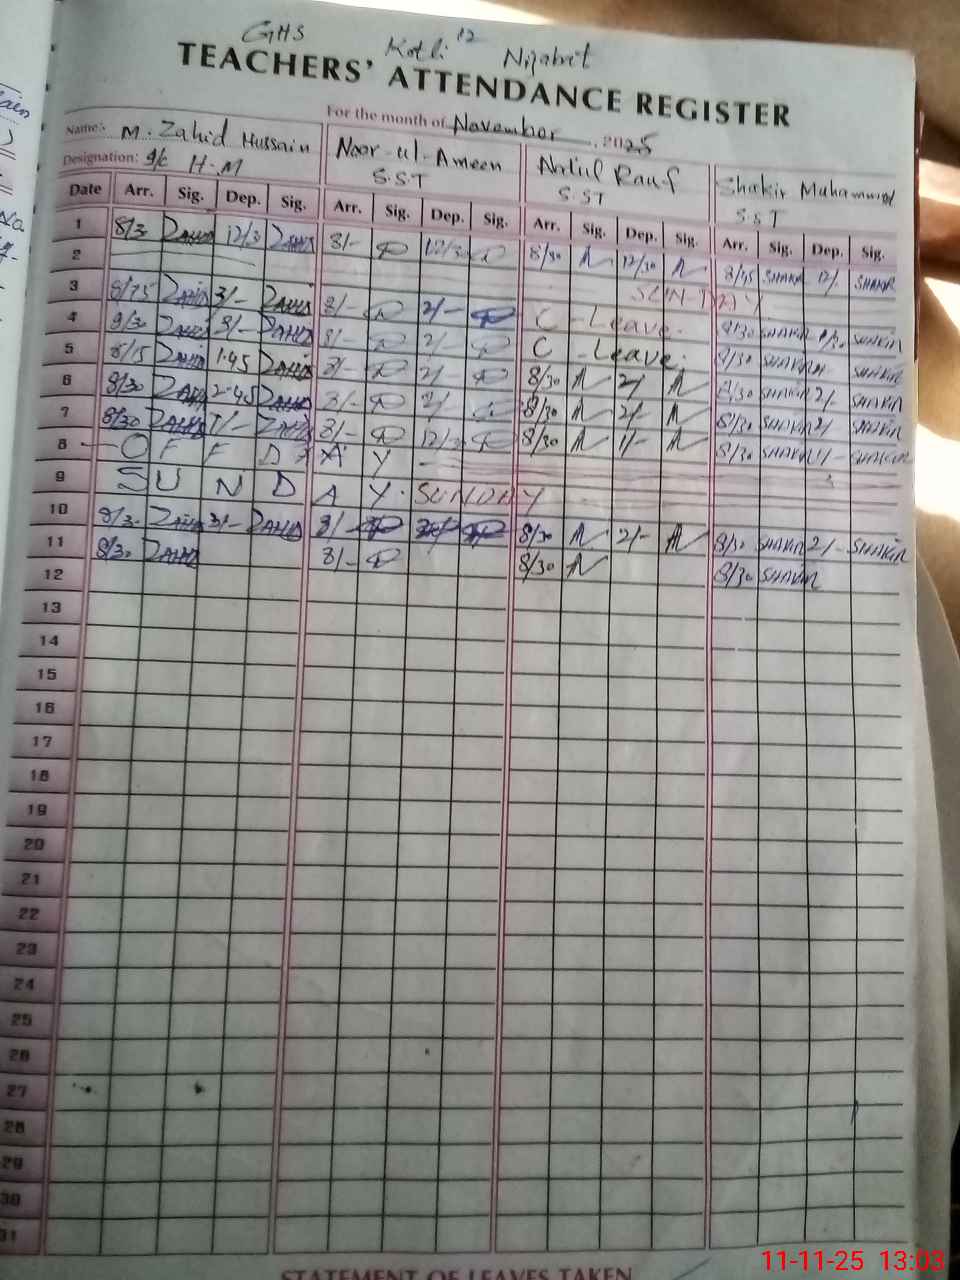 GHS Kotli 12 Nizabat
TEACHERS' ATTENDANCE REGISTER
For the month of November, 2025
Name:- M. Zahid Hussain Noor-ul-Ameen Abdul Rauf Shakir Muhammad
Designation: I/C H.M S.S.T S.ST S.S.T
Date Arr. Sig. Dep. Sig. Arr. Sig. Dep. Sig. Arr. Sig. Dep. Sig. Arr. Sig. Dep. Sig.
1 8/3 Zahid 12/3 Zahid 8/- 12/30 8/30 12/30 8/15 SHAKIR 12/- SHAKIR
2 SUNDAY
3 8/15 Zahid 3/- Zahid 8/- 2/- C - Leave. 8/30 SHAKIR SHAKIR
4 8/30 Zahid 3/- Zahid 8/- 2/- C - Leave. 8/30 SHAKIR SHAKIR
5 8/15 Zahid 1.45 Zahid 8/- 2/- 8/30 2/- 8/30 SHAKIR 2/- SHAKIR
6 8/30 Zahid 2.45 Zahid 8/- 2/- 8/30 2/- 8/30 SHAKIR 2/- SHAKIR
7 8/30 Zahid 1/- Zahid 8/- 12/30 8/30 1/- 8/30 SHAKIR 1/- SHAKIR
8 - O F F D A Y -
9 S U N D A Y. SUNDAY
10 8/30 Zahid 3/- Zahid 8/- 8/30 2/- 8/30 SHAKIR 2/- SHAKIR
11 8/30 Zahid 8/- 8/30 8/30 SHAKIR
12
13
14
15
16
17
18
19
20
21
22
23
24
25
26
27
28
29
30
31
STATEMENT OF LEAVES TAKEN
11-11-25 13:03